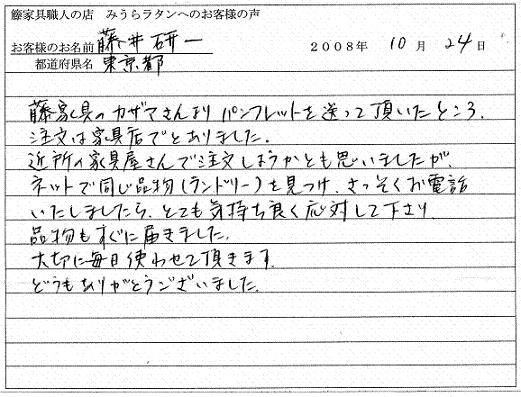 籐家具職人の店　みうらラタンへのお客様の声
お客様のお名前　藤井研一　2008年　10月　24日
都道府県名　東京都
藤家具のカザマさんより パンフレットを送って頂いたところ、
注文は家具店でとありました。
近所の家具屋さんで注文しようかとも思いましたが、
ネットで同じ品物(ランドリー)を見つけ、さっそくお電話
いたしましたら、とても気持ち良く応対して下さり
品物もすぐに届きました。
大切に毎日使わせて頂きます。
どうもありがとうございました。